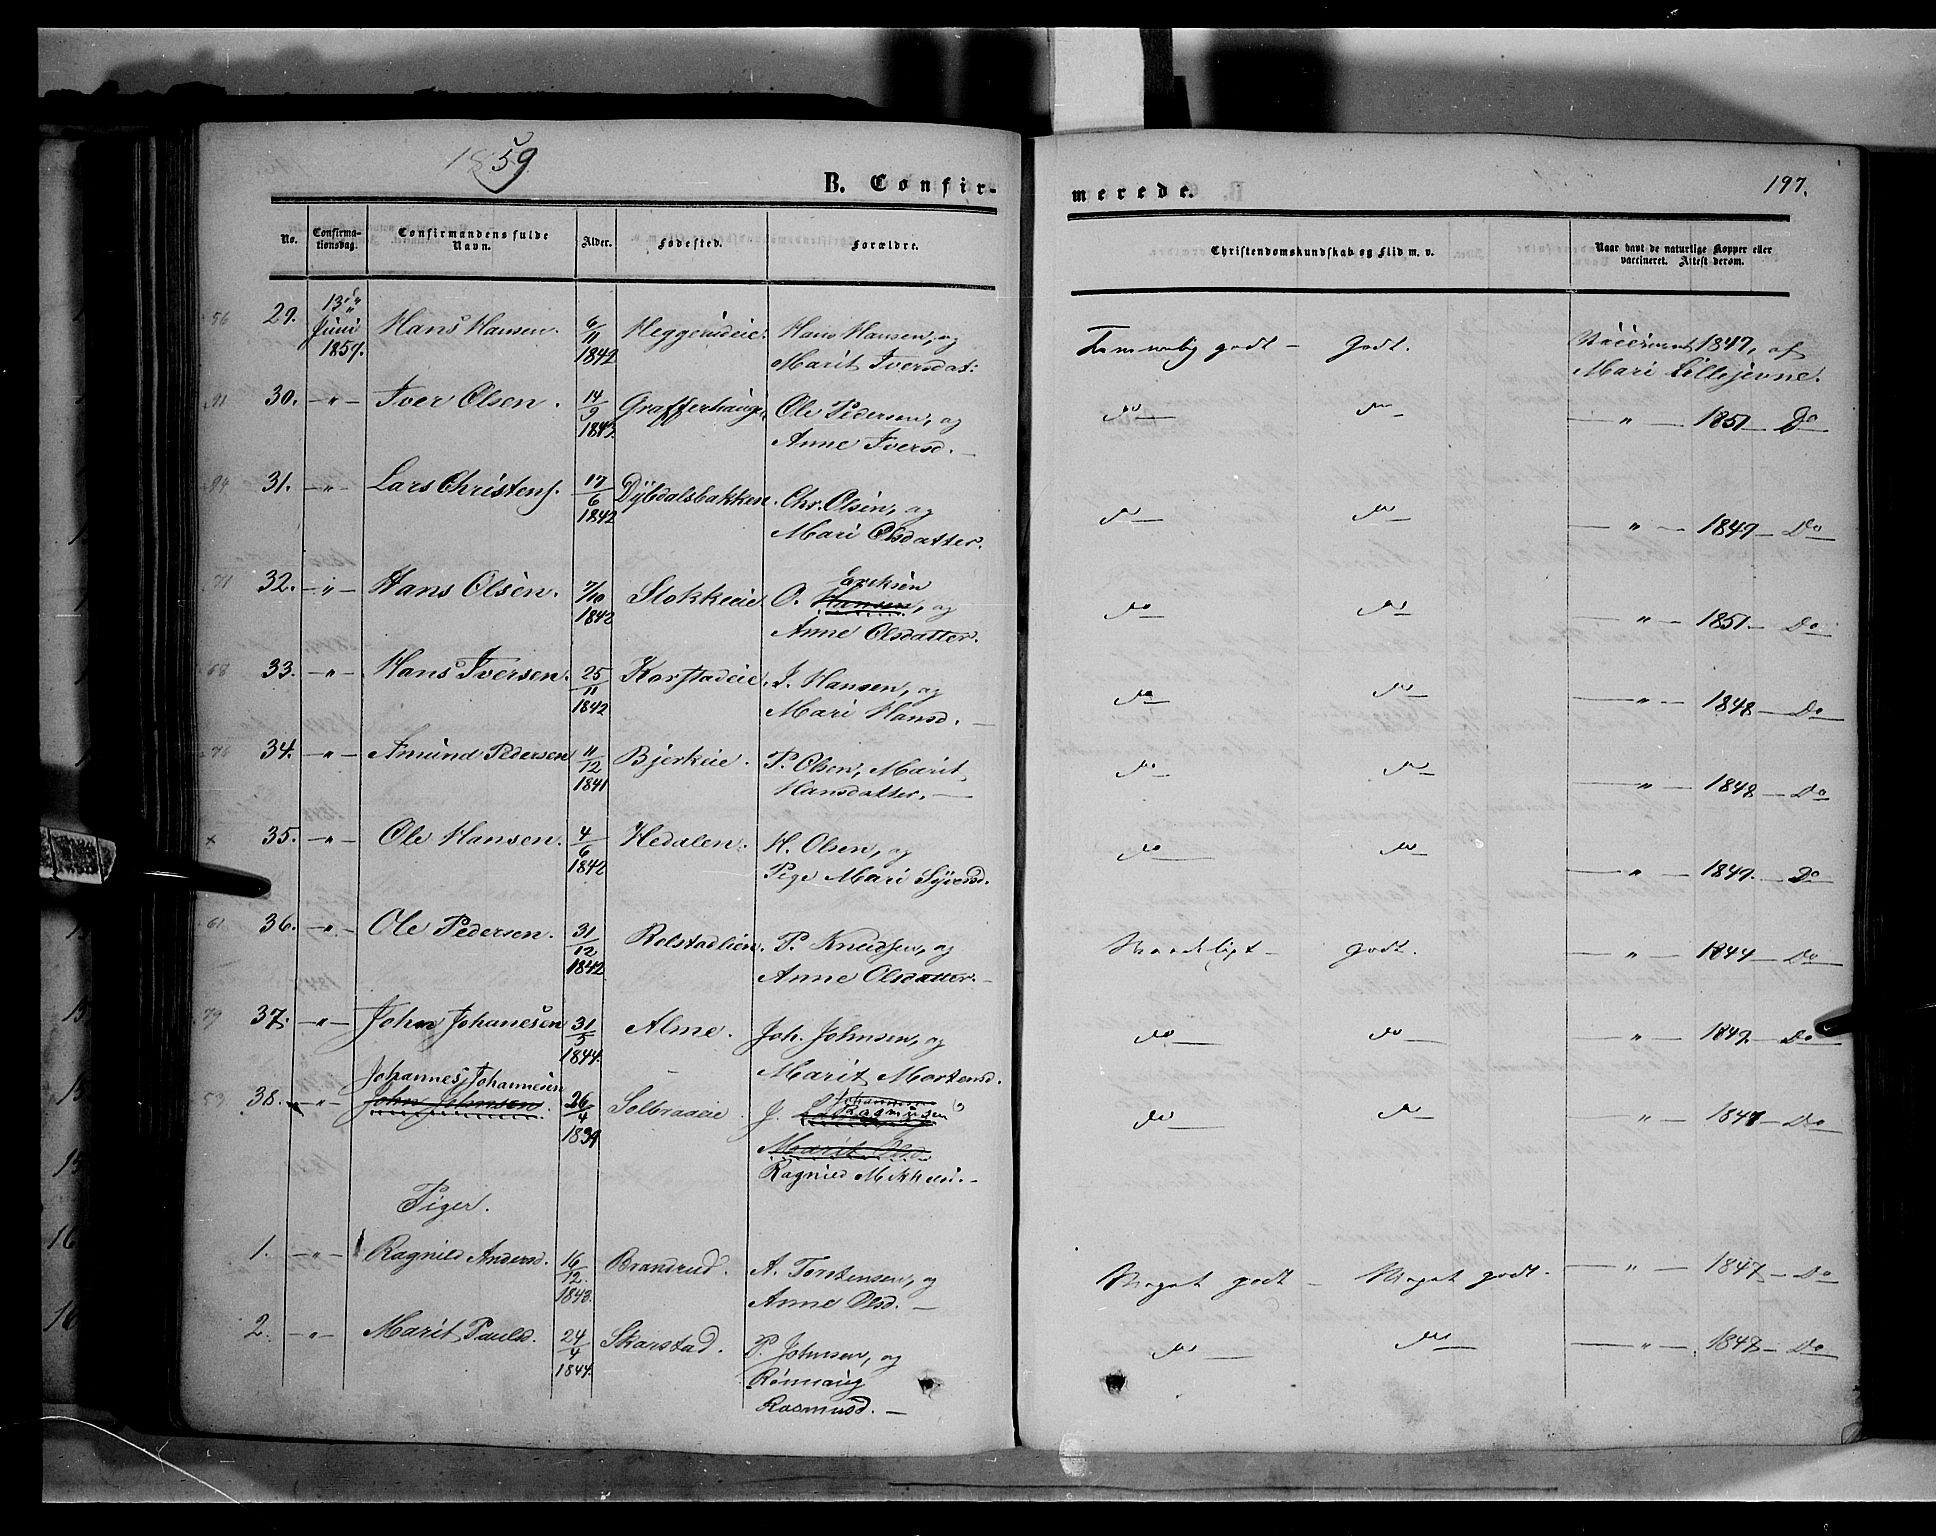 1859
B. Confir-
merede.
197.
No. Confirma-tionsdag. Confirmandens fulde Navn. Alder. Fødested. Forældre. Christendomskundskab og Flid m. v. Naar havt de naturlige Kopper eller vaccineret. Attest derom.
56 29. 13de Juni 1859. Hans Hansen. 6/11 1842 Heggerudeie. Hans Hansen, og Temmelig godt — Godt. Vaccineret 1847, af
Marit Iversdat: Mari Lillejevne.
30. — " — Iver Olsen. 14/9 1842 Ole Pedersen, og do do — " — 1851 — Do
Anne Iversd. —
31. — " — Lars Christens. 17/6 1842 Dybdalsbakken. Chr. Olsen, og do do — " — 1847 — Do
Mari Olsdatter.
32. — " — Hans Olsen. 7/10 1842 Slokkeeie. Eriksen
O. Hansen, og do do — " — 1851 — Do
Anne Olsdatter.
68 33. — " — Hans Iversen. 25/11 1842 Korstadeie. I. Hansen, og do do — " — 1848 — Do
Mari Hansd. —
34. — " — Amund Pedersen 11/12 1841 Bjerkeie. P. Olsen, Marit do do — " — 1848 — Do
Hansdatter. —
x 35. — " — Ole Hansen. 4/6 1842 Hedalen. H. Olsen, og do do — " — 1847. — Do
Pige Mari Syversd.
61 36. — " — Ole Pedersen. 31/12 1842 Rolstadlien. P. Knudsen, og Maadeligt — godt. — " — 1844 — Do
Anne Olsdatter. —
79 37. — " — John Johanesen 31/5 1844. Alme. Joh. Johnsen, og do do — " — 1847 — Do
Marit Mortensd.
Johannes Johannesen
53 38. — " — John Johnsen. 26/4 1839 Solbraaeie. Johannesen
J. Rasmusen do do " 1847 — Do
Marit Olsd.
Ragnild Mikkels. —
Piger.
1. — " — Ragnild Andersd. 16/12 1843. Brandrud. A. Torstensen, og Meget godt — Meget godt. — " — 1847 — Do
Anne Olsd. —
2. — " — Marit Paulsd. 24/4 1844. Skarstad. P. Johnsen, og do do — " — 1847 — Do
Rønnaug
Rasmusd. —